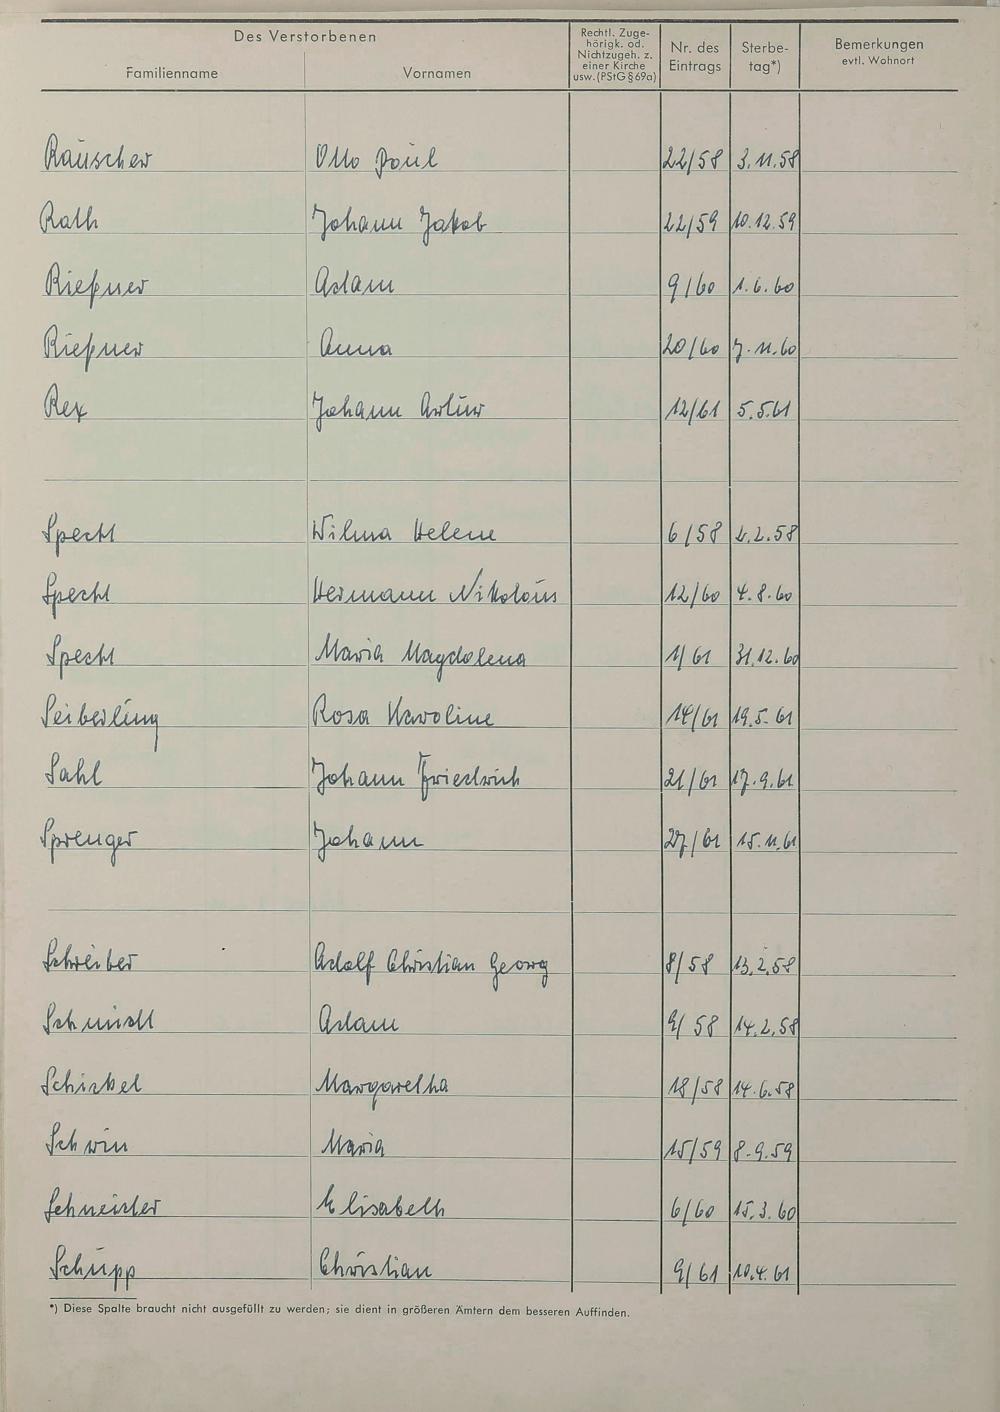 Des Verstorbenen
Familienname Vornamen
Rechtl. Zuge-
hörigk. od.
Nichtzugeh. z.
einer Kirche
usw. (PStG § 69a)
Nr. des
Eintrags
Sterbe-
tag*)
Bemerkungen
evtl. Wohnort
Rauscher Otto Paul 22/58 3.11.58
Rath Johann Jakob 22/59 10.12.59
Rießner Adam 9/60 1.6.60
Rießner Anna 20/60 7.11.60
Rex Johann Artur 12/61 5.5.61
Specht Wilma Helene 6/58 2.2.58
Specht Hermann Nikolaus 12/60 4.8.60
Specht Maria Magdalena 1/61 31.12.60
Seiberling Rosa Karoline 14/61 19.5.61
Sahl Johann Friedrich 21/61 17.9.61
Sprenger Johann 27/61 15.11.61
Schreiber Adolf Christian Georg 8/58 13.2.58
Schmidt Adam 9/58 14.2.58
Schickel Margaretha 18/58 14.6.58
Schwin Maria 15/59 8.9.59
Schneider Elisabeth 6/60 15.3.60
Schupp Christian 9/61 10.4.61
*) Diese Spalte braucht nicht ausgefüllt zu werden; sie dient in größeren Ämtern dem besseren Auffinden.